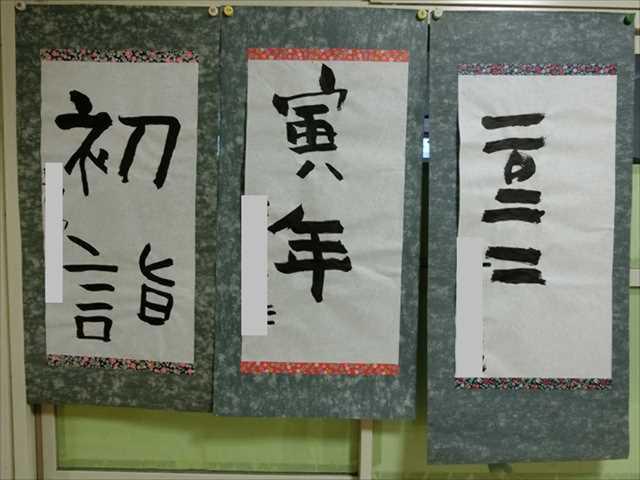 二〇二二
寅年
初詣